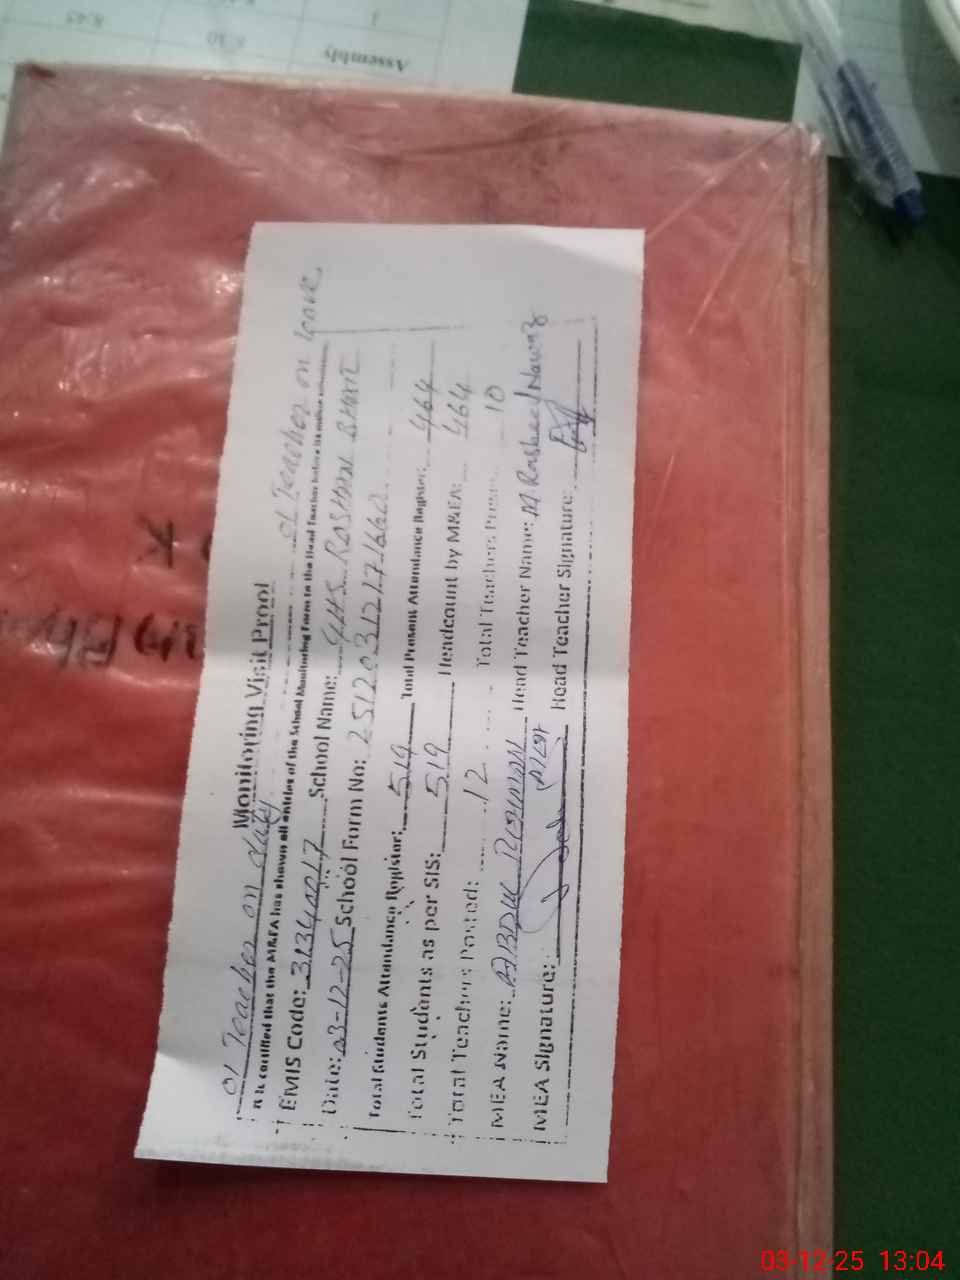 Assembly
8:30
8:45
1
Monitoring Visit Proof
01 Teacher on duty
01 Teacher on leave
It is certified that the M&EA has shown all entries of the School Monitoring Form to the Head Teacher before its online
EMIS Code: 31340017 School Name: GHS ROSHAN BHATE
Date: 03-12-25 School Form No: 2512031217166
Total Students Attendance Register: 519 Total Present Attendance Register: 464
Total Students as per SIS: 519 Headcount by M&EA: 464
Total Teachers Posted: 12 Total Teachers Present 10
MEA Name: ABDUL REHMAN Head Teacher Name: M Rasheed Nawaz
MEA Signature: Head Teacher Signature:
03-12-25 13:04